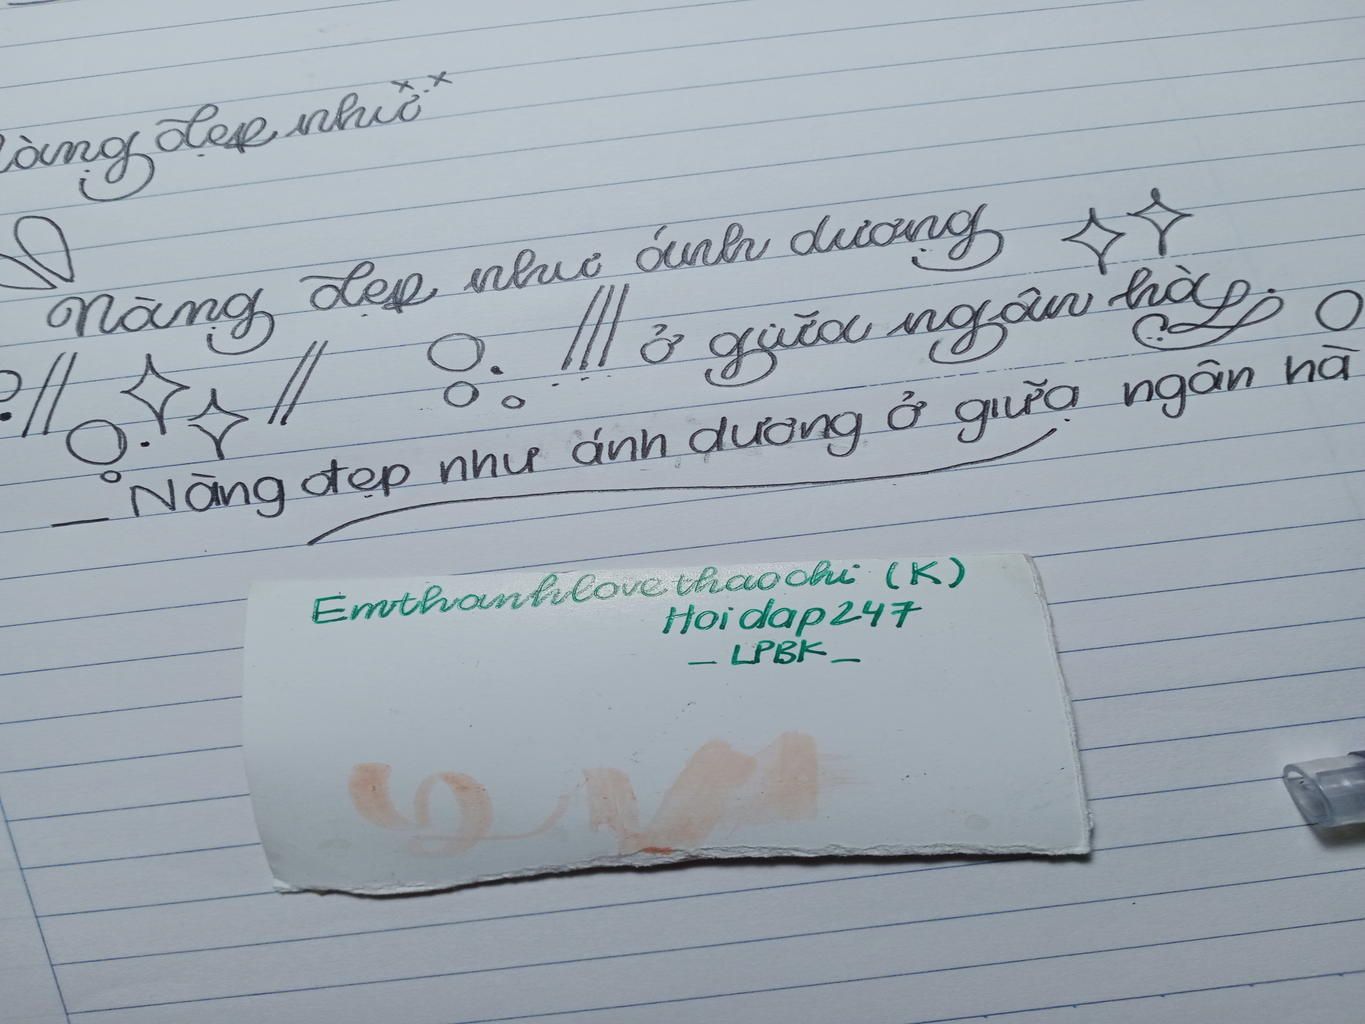 Nàng đẹp như
Nàng đẹp như ánh dương
ở giữa ngân hà
_ Nàng đẹp như ánh dương ở giữa ngân hà
Emthanhlovethaochi (K)
Hoidap247
_ LPBK _